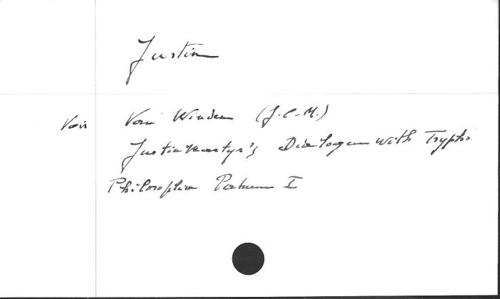 Justin
Voir Van Winden (J.C.M.)
Justin Martyr's Dialogue with Trypho
Philosophia Patrum I